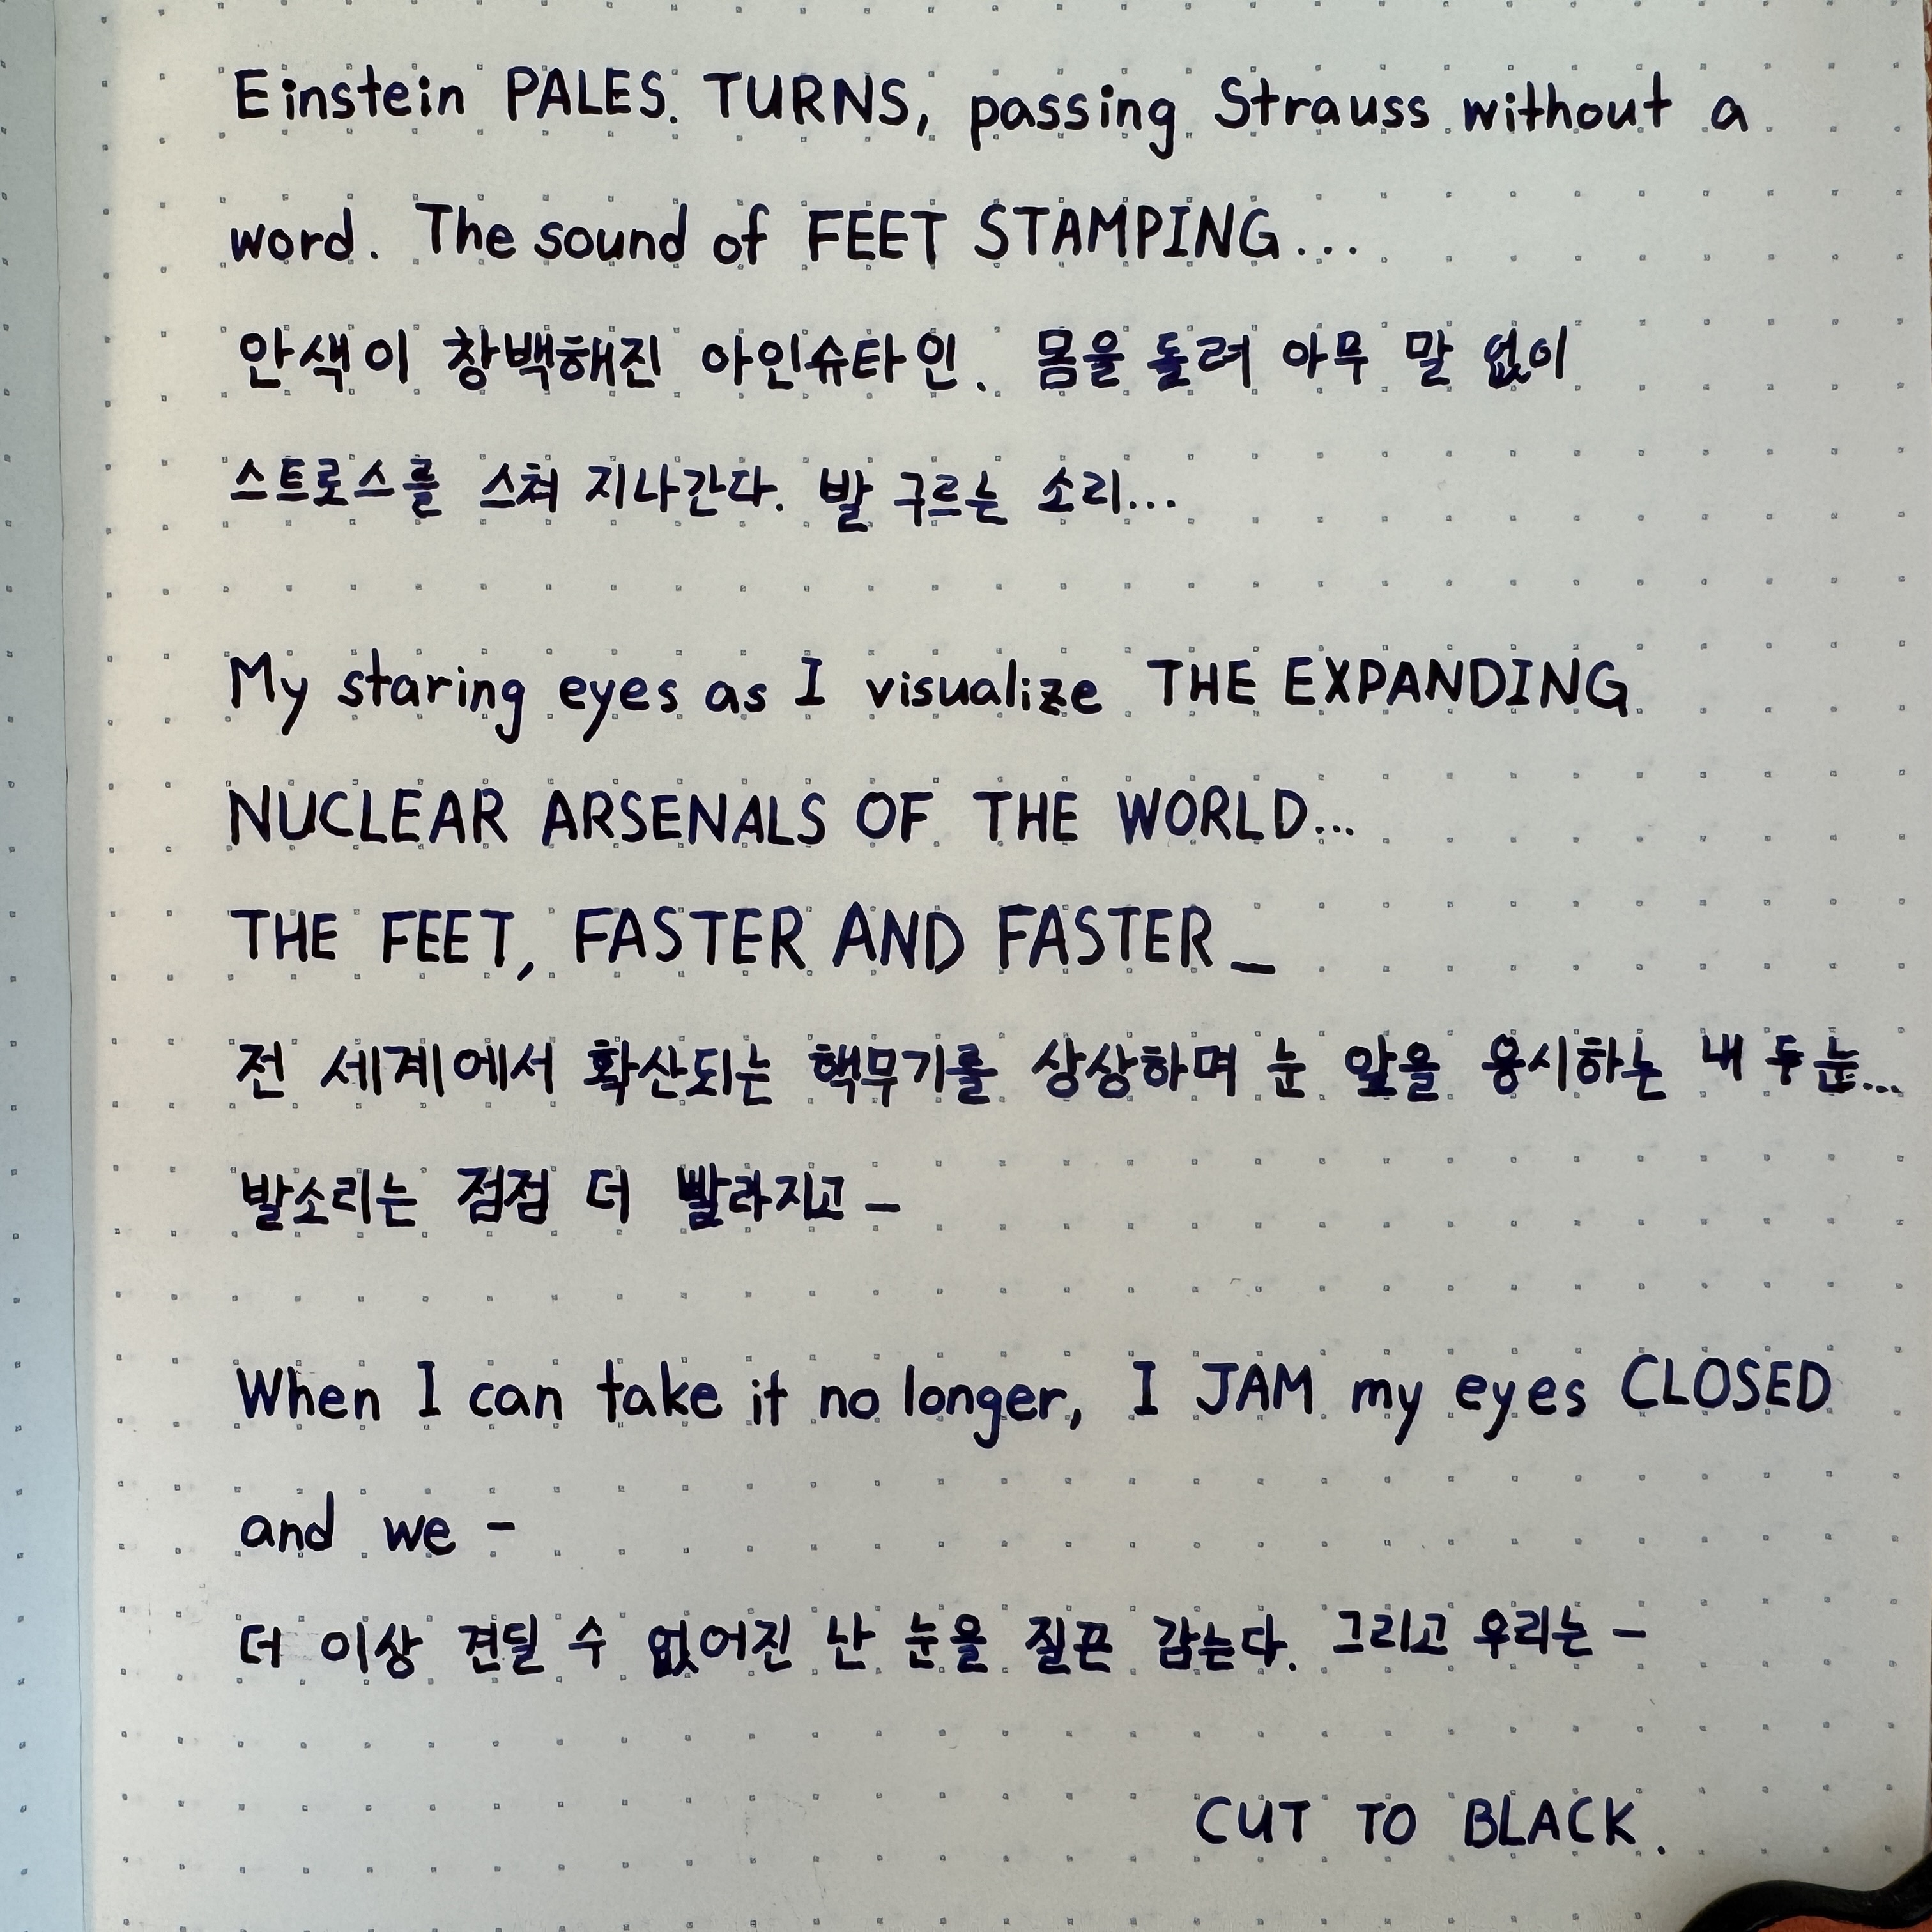 Einstein PALES. TURNS, passing Strauss without a
word. The sound of FEET STAMPING...
안색이 창백해진 아인슈타인. 몸을 돌려 아무 말 없이
스트로스를 스쳐 지나간다. 발 구르는 소리...
My staring eyes as I visualize THE EXPANDING
NUCLEAR ARSENALS OF THE WORLD...
THE FEET, FASTER AND FASTER_
전 세계에서 확산되는 핵무기를 상상하며 눈 앞을 응시하는 내 두 눈...
발소리는 점점 더 빨라지고 -
When I can take it no longer, I JAM my eyes CLOSED
and we -
더 이상 견딜 수 없어진 난 눈을 질끈 감는다. 그리고 우리는 -
CUT TO BLACK.